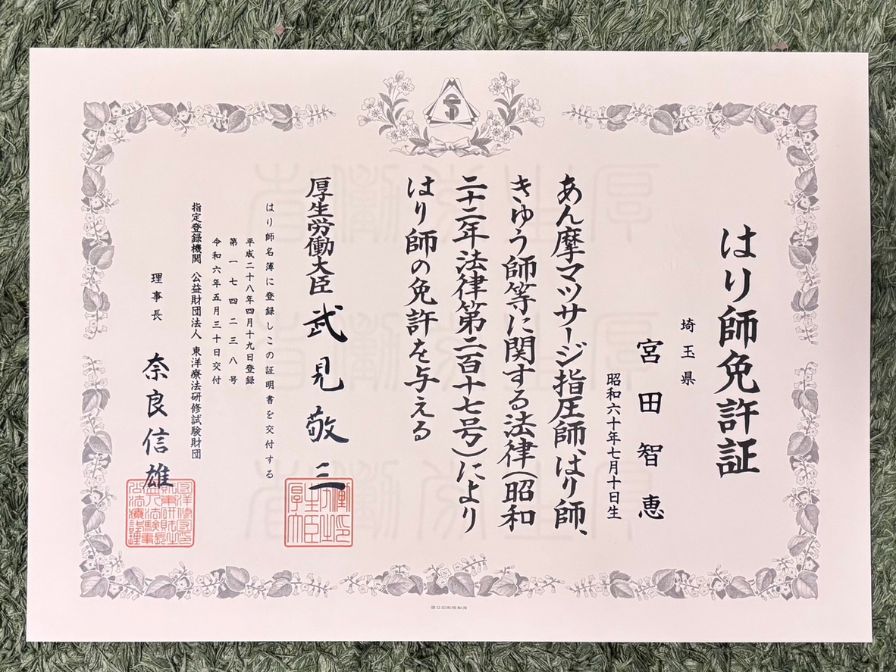 はり師免許証
埼玉県
宮田智恵
昭和六十年七月十日生
あん摩マツサージ指圧師、はり師、
きゆう師等に関する法律(昭和
二十二年法律第二百十七号)により
はり師の免許を与える
厚生労働大臣 武見敬三
はり師名簿に登録しこの証明書を交付する
平成二十八年四月十九日登録
第一七四二三八号
令和六年五月三十日交付
指定登録機関 公益財団法人 東洋療法研修試験財団
理事長 奈良信雄